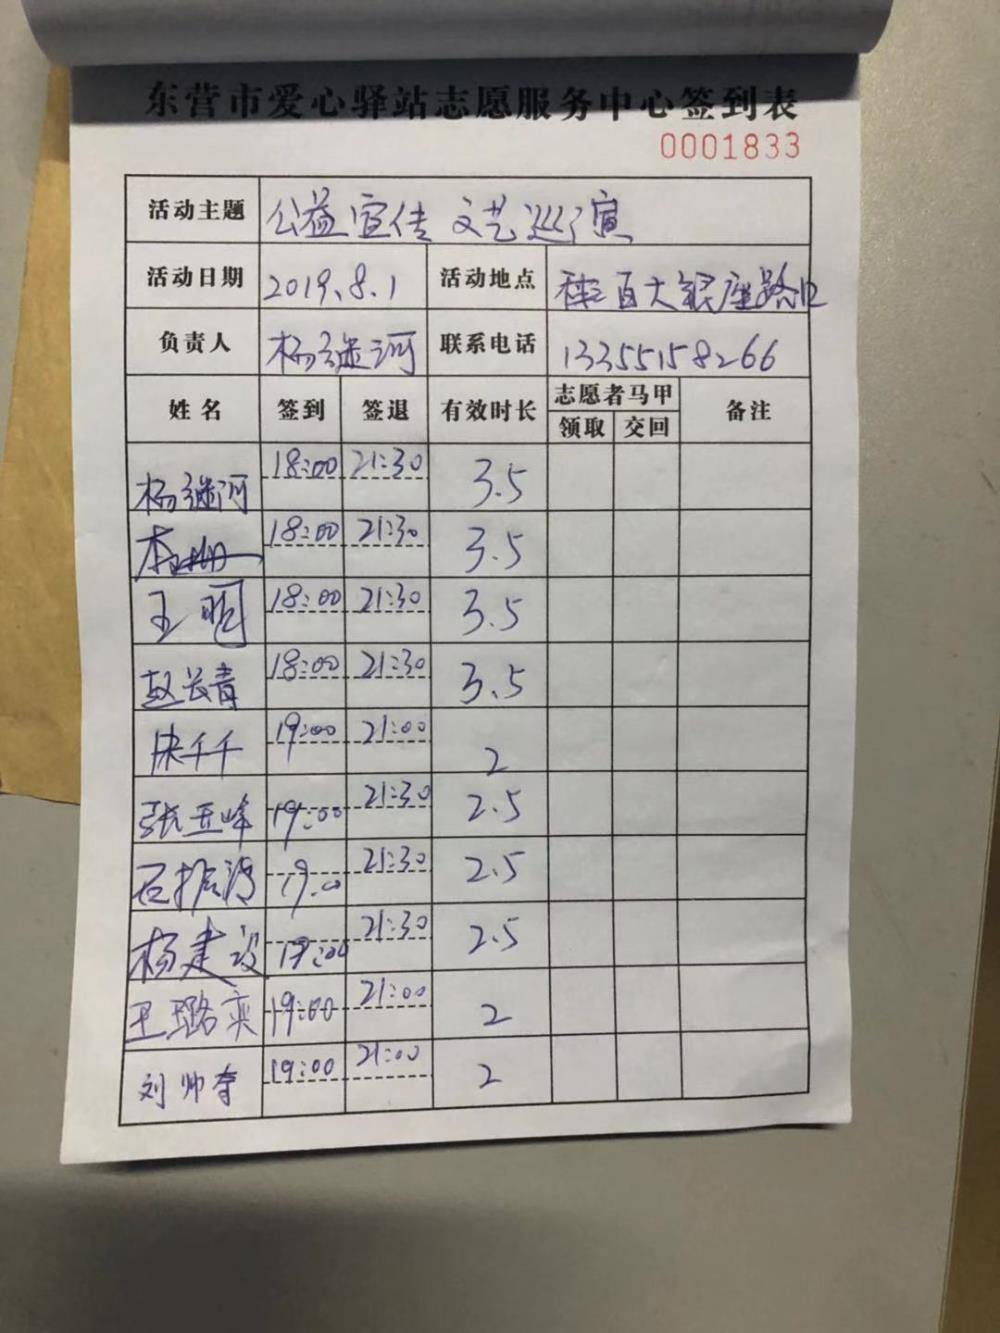 东营市爱心驿站志愿服务中心签到表
0001833
活动主题 公益宣传 文艺巡演
活动日期 2019.8.1 活动地点 百大银座路口
负责人 杨继河 联系电话 13355158266
姓名 签到 签退 有效时长 志愿者马甲 备注
领取 交回
杨继河 18:00 21:30 3.5
18:00 21:30 3.5
王明 18:00 21:30 3.5
赵长青 18:00 21:30 3.5
千千 19:00 21:00 2
张玉峰 19:00 21:30 2.5
石振涛 19:00 21:30 2.5
杨建设 19:00 21:30 2.5
王璐奕 19:00 21:00 2
刘帅奇 19:00 21:00 2